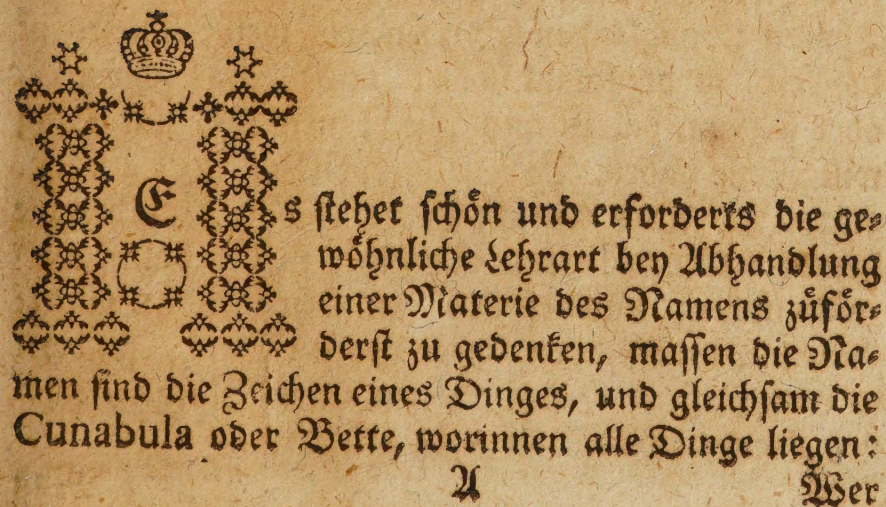 Es stehet schön und erforderts die ge⸗
wöhnliche Lehrart bey Abhandlung
einer Materie des Namens züför⸗
derst zu gedenken, massen die Na⸗
men sind die Zeichen eines Dinges, und gleichsam die
Cunabula oder Bette, worinnen alle Dinge liegen:
A Wer